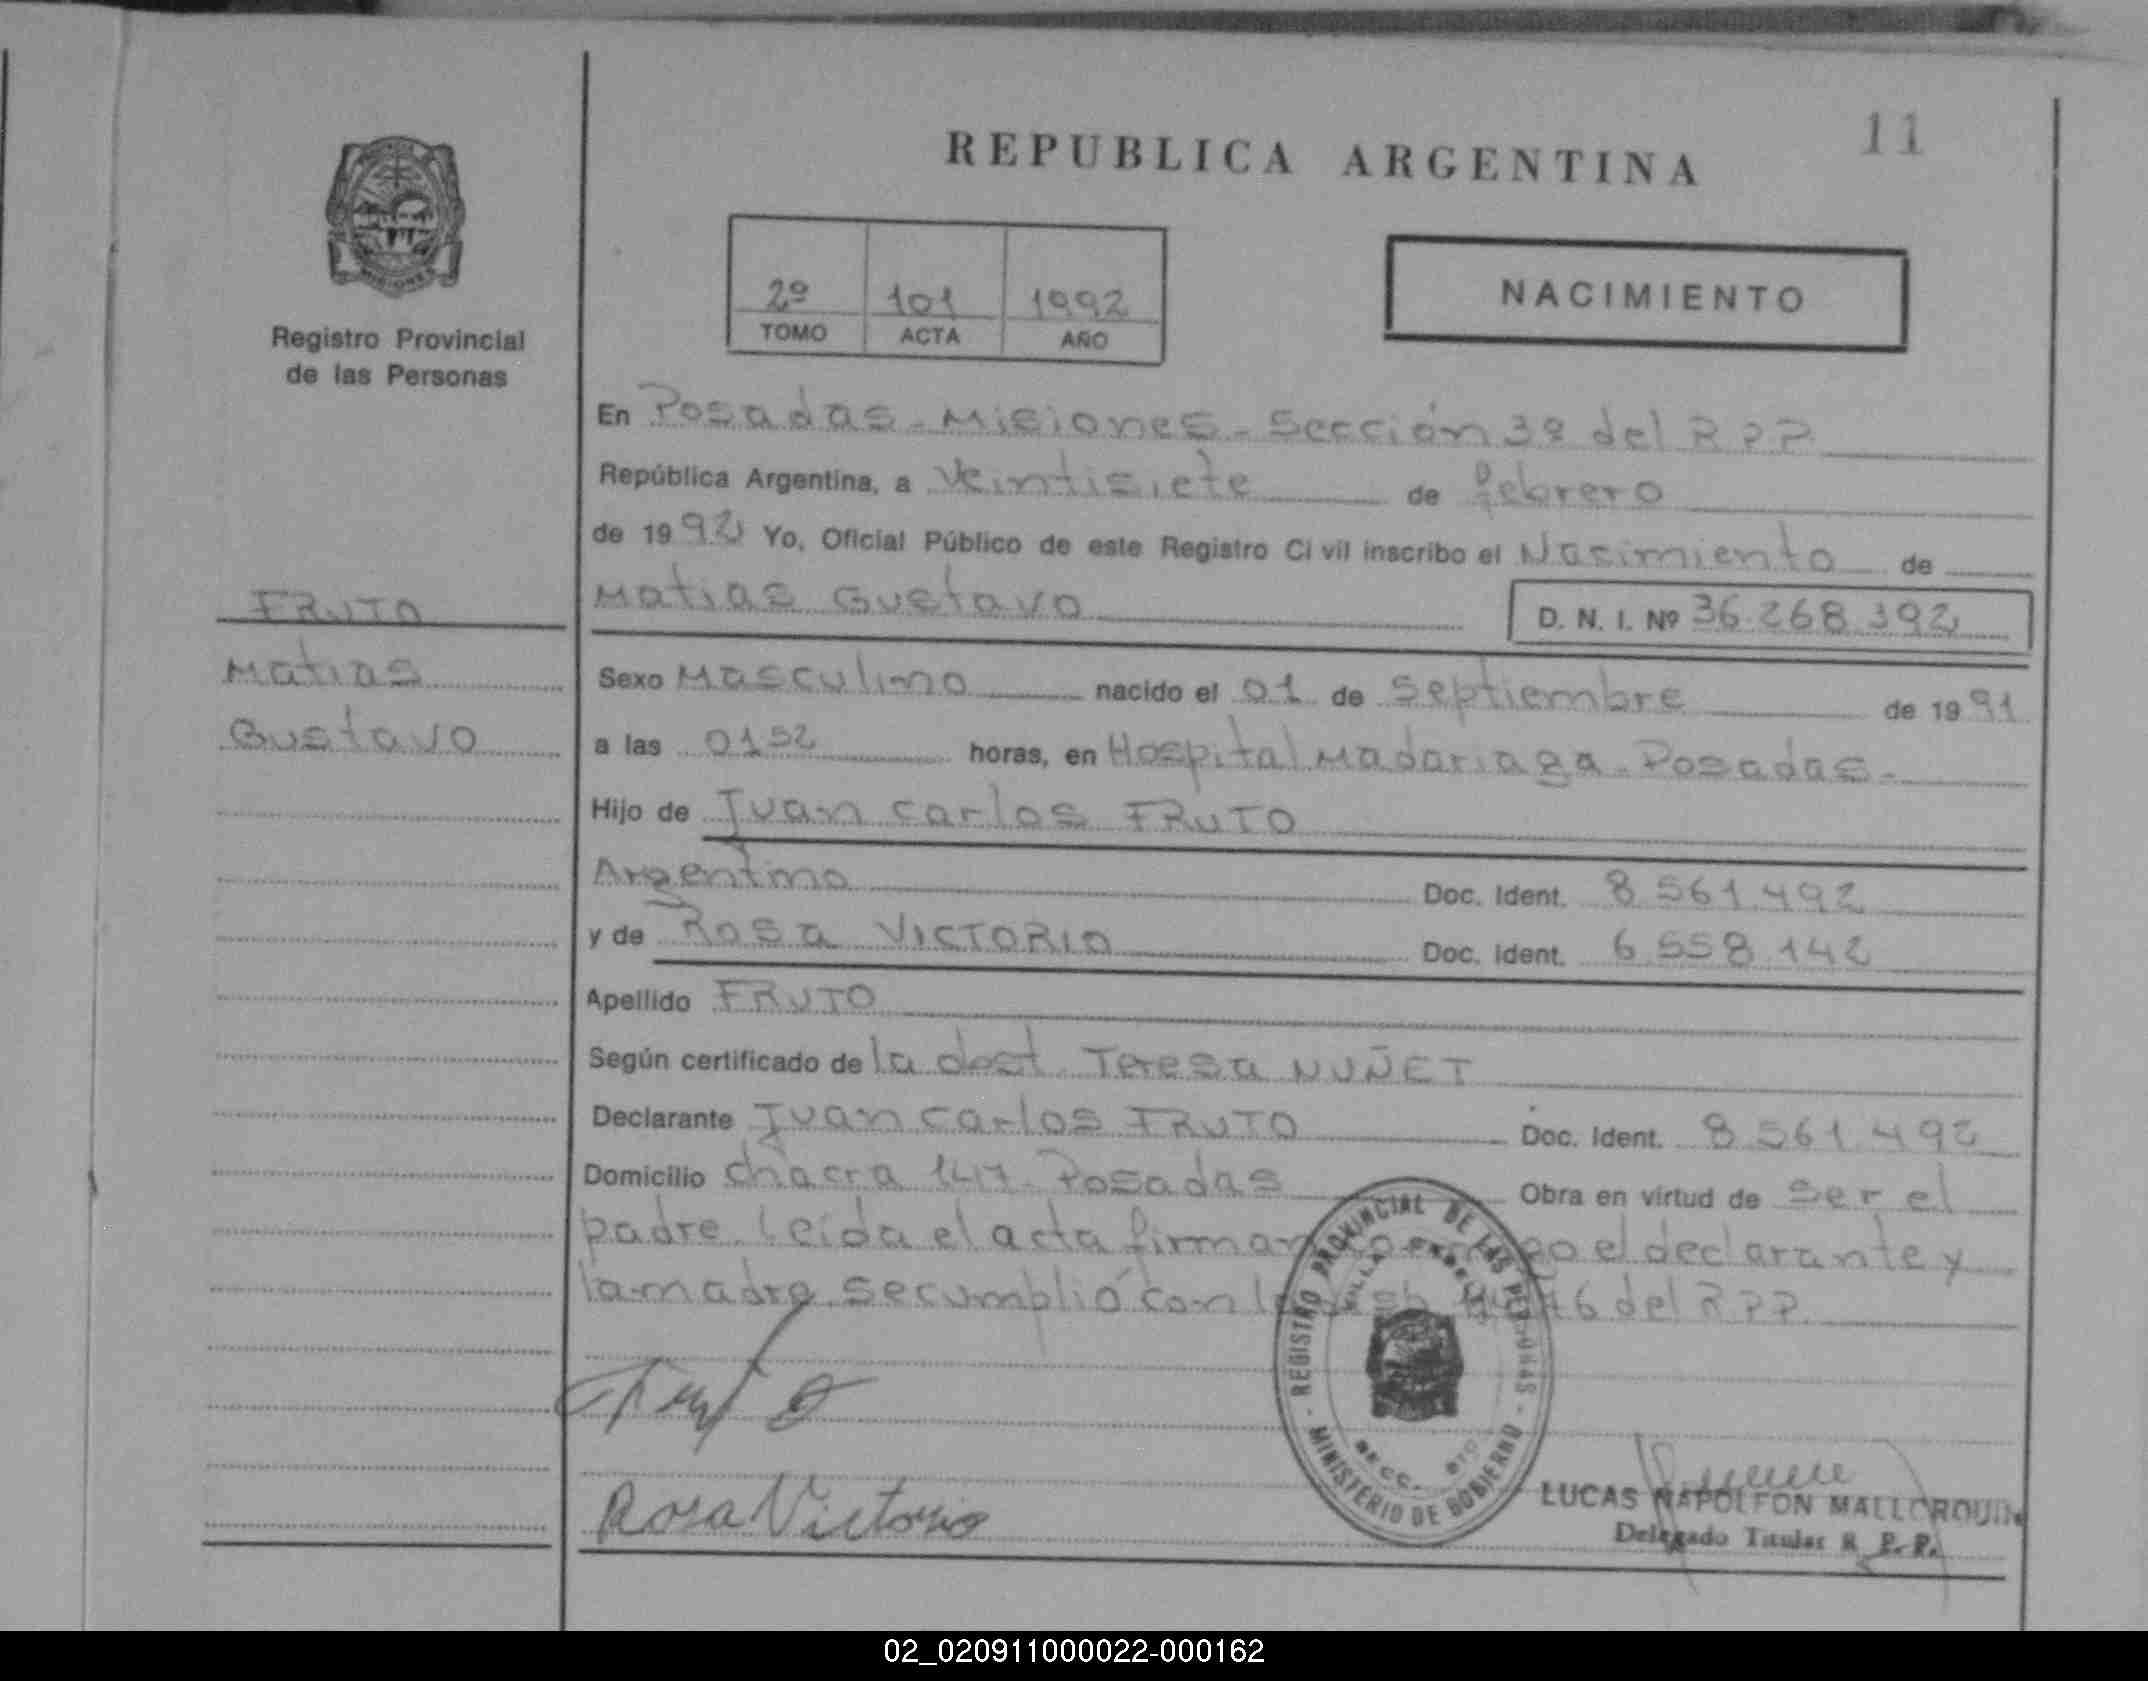 REPUBLICA ARGENTINA
11
MISIONES
Registro Provincial
de las Personas
2º 101 1992
TOMO ACTA AÑO
NACIMIENTO
En Posadas - Misiones - Sección 3º del R P P
República Argentina, a Veintisiete de febrero
de 1992 Yo, Oficial Público de este Registro Ci vil inscribo el Nacimiento de
FRUTO
Matias Gustavo
D. N. I. Nº 36.268.392
Matias
Sexo Masculino nacido el 01 de Septiembre de 1991
Gustavo
a las 01 52 horas, en Hospital Madariaga - Posadas -
Hijo de Juan Carlos FRUTO
Argentino Doc. Ident. 8 561 492
y de Rosa VICTORIO Doc. Ident. 6 558 142
Apellido FRUTO
Según certificado de la doct. Teresa NUÑET
Declarante Juan Carlos FRUTO Doc. Ident. 8 561 492
Domicilio chacra 147 - Posadas Obra en virtud de ser el
padre. Leída el acta firman el declarante y
la madre se cumplió con 6 del R P P.
REGISTRO PROVINCIAL DE LAS PERSONAS - MINISTERIO DE GOBIERNO -
VILLA
SECC.
Rosa Victorio
LUCAS NAPOLEON MALLORQUIN
Delegado Titular R. P. P.
02_020911000022-000162